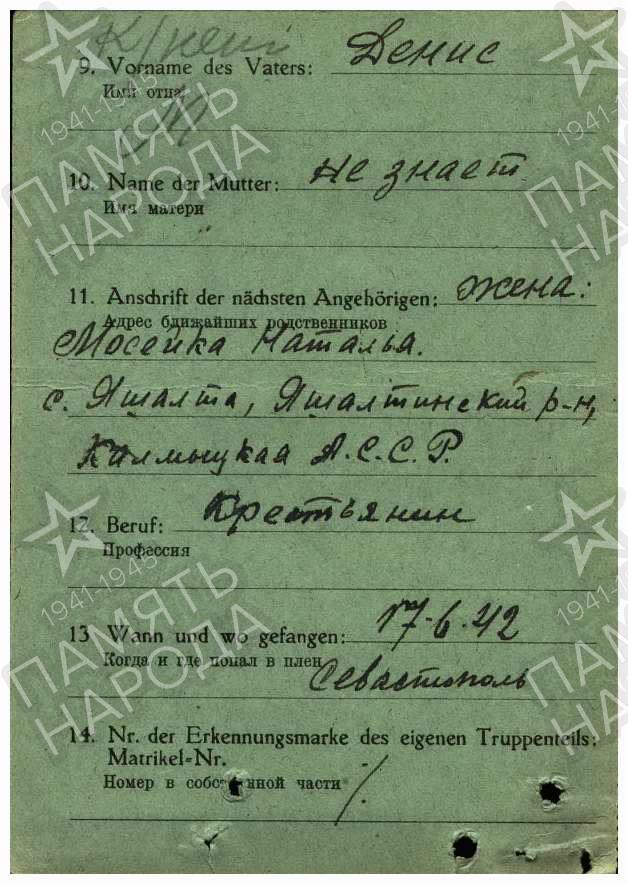 9. Vorname des Vaters: Денис
Имя отца
10. Name der Mutter: не знает
Имя матери
11. Anschrift der nächsten Angehörigen: жена:
Адрес ближайших родственников
Мосейка Наталья.
с. Яшалта, Яшалтинский р-н,
Калмыцкая А.С.С.Р.
12. Beruf: Крестьянин
Профессия
13 Wann und wo gefangen: 17-6-42
Когда и где попал в плен Севастополь
14. Nr. der Erkennungsmarke des eigenen Truppenteils:
Matrikel-Nr.
Номер в собственной части /.
1941-1945
ПАМЯТЬ
НАРОДА
1941-1945
ПАМЯТЬ
НАРОДА
1941-1945
ПАМЯТЬ
НАРОДА
1941-1945
ПАМЯТЬ
НАРОДА